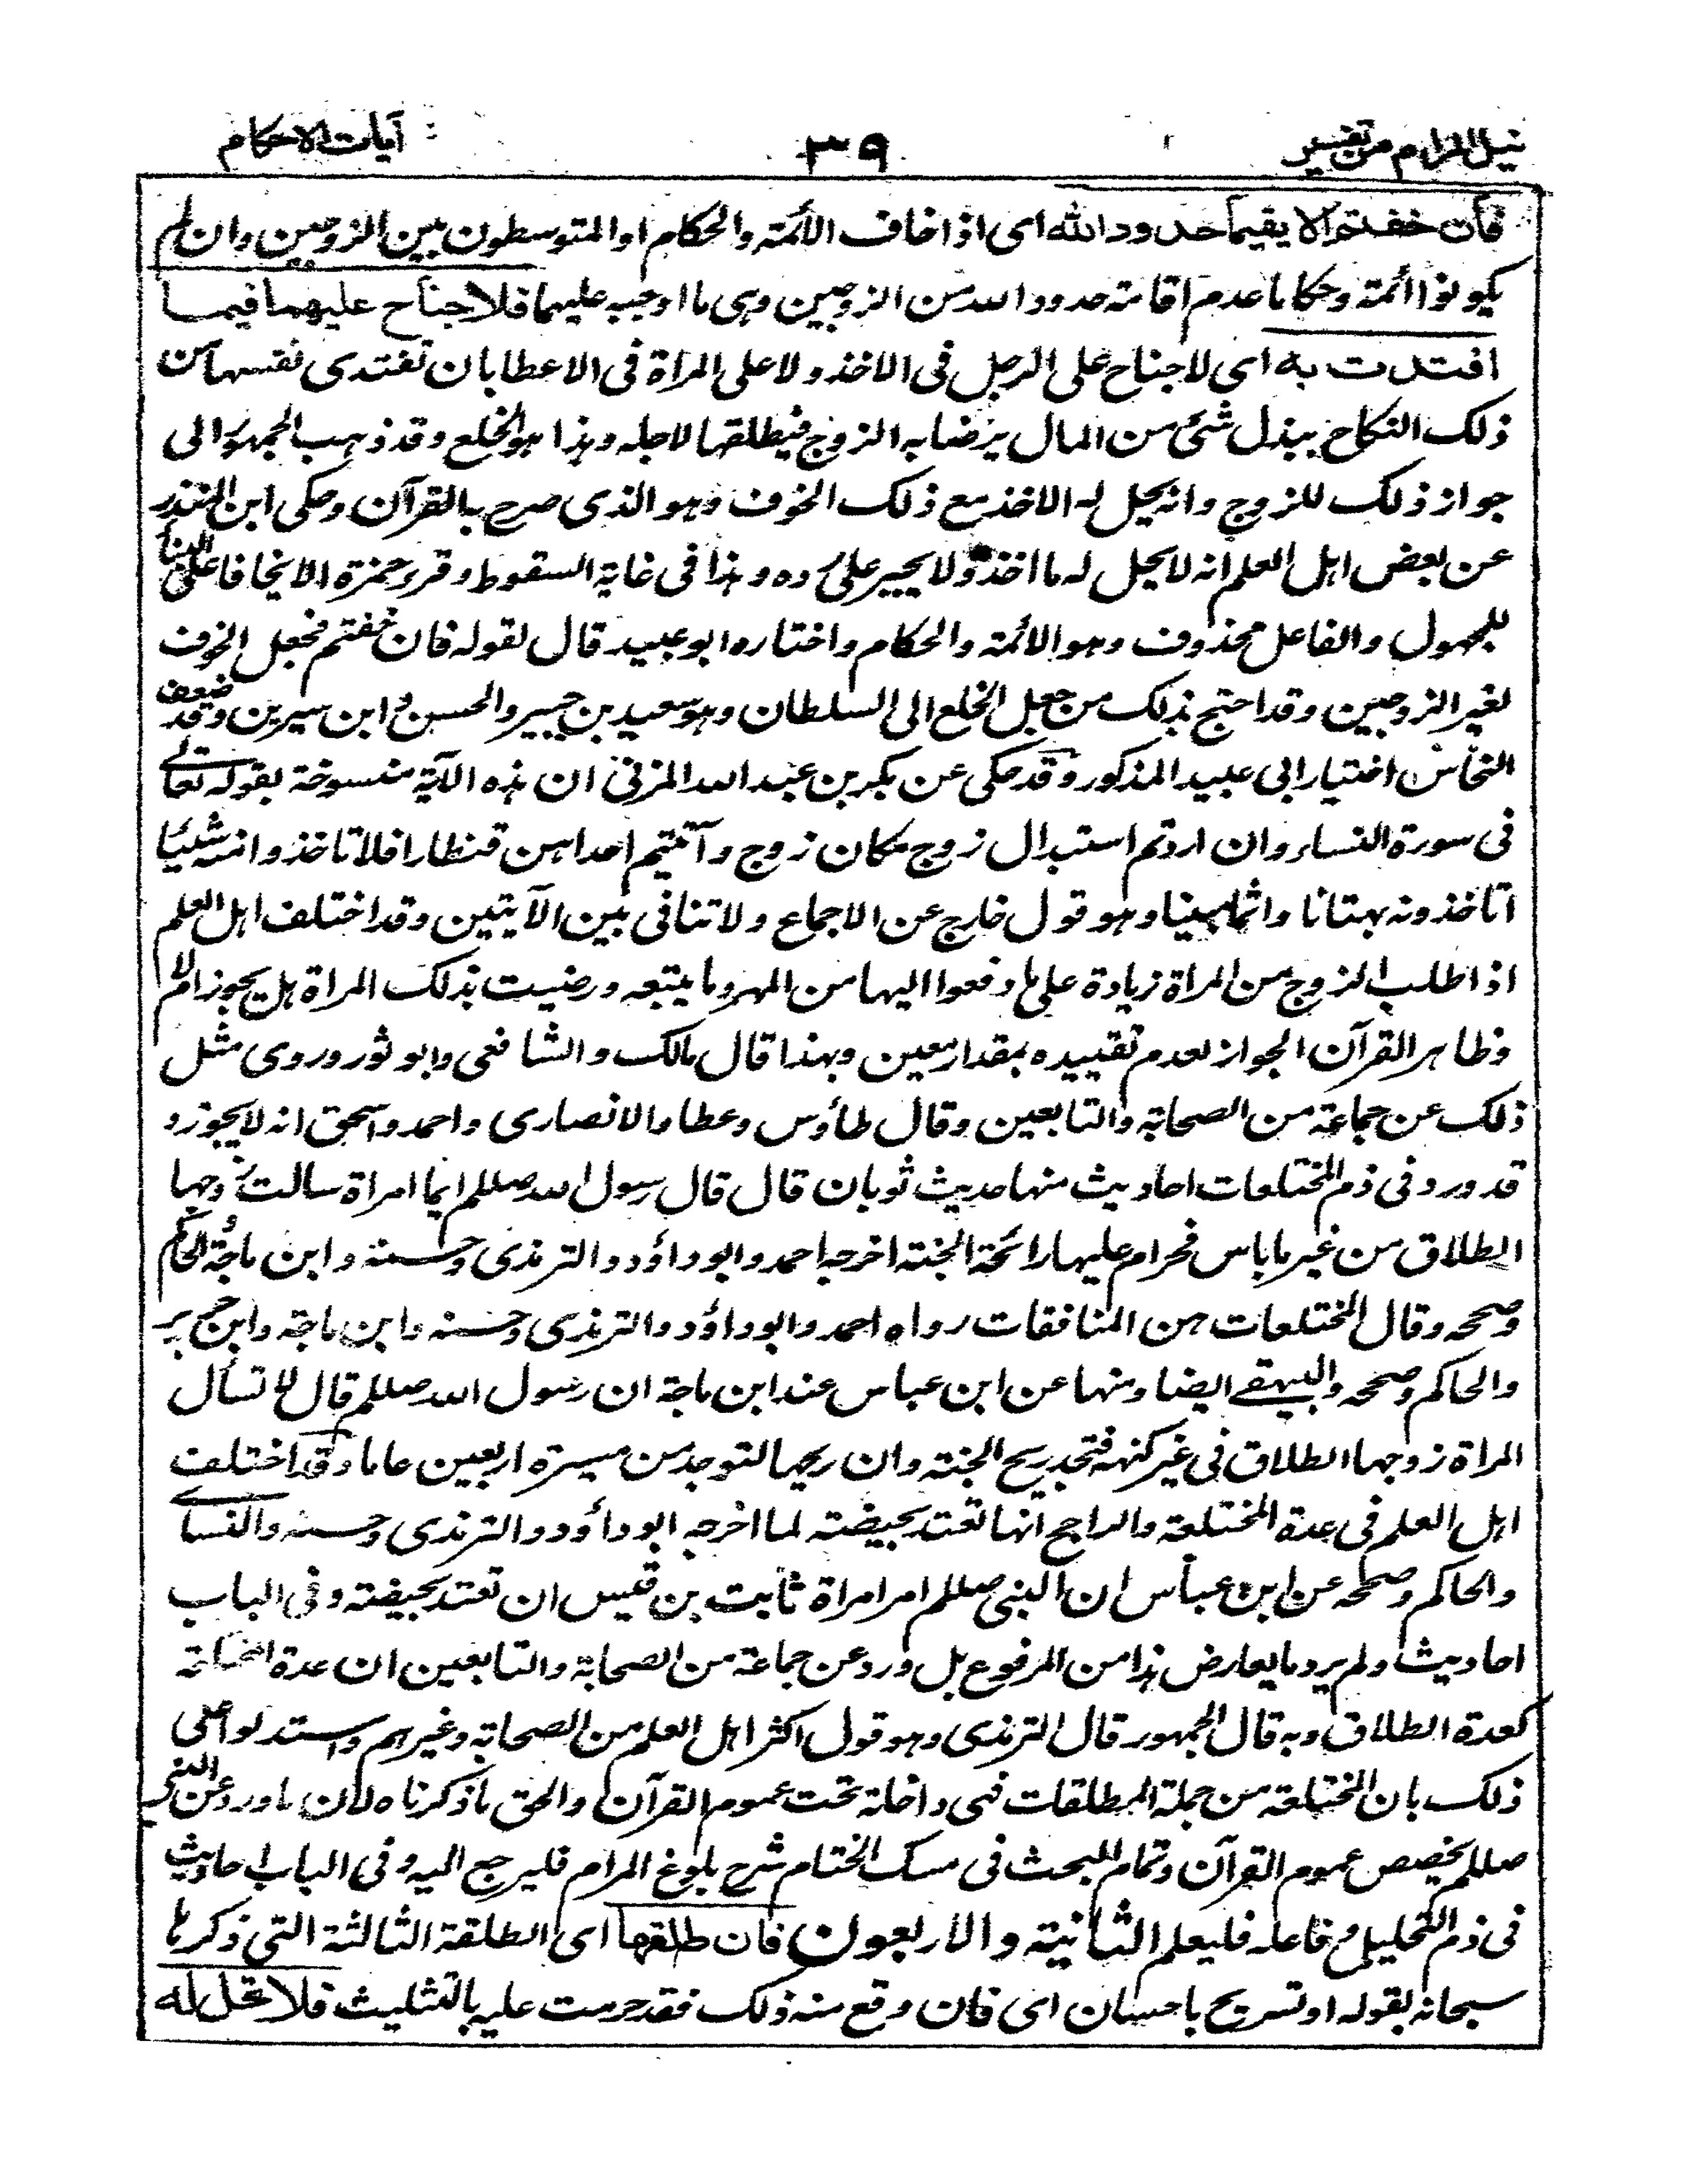 نيل المرام من تفسير
٣٩
آيات الاحكام
فان خفتم الا يقيما حدود الله اى اذا خاف الأئمة والحكام او المتوسطون بين الزوجين وان لم
يكونوا أئمة وحكاما عدم اقامة حدود الله من الزوجين وہى ما اوجبه عليهما فلا جناح عليهما فيما
افتدت به اى لا جناح على الرجل فى الاخذ ولا على المراة فى الاعطا بان تفتدى نفسها من
ذلك النكاح ببذل شئ من المال يرضا به الزوج فيطلقها لاجله وہذا ہو الخلع وقد ذہب الجمہور الى
جواز ذلك للزوج وانه يحل له الاخذ مع ذلك الخوف وہو الذى صرح به القرآن وحكى ابن المنذر
عن بعض اہل العلم انه لا يحل له ما اخذ ولا يجبر على رده وہذا فى غاية السقوط وقرء حمزة الا يخافا على البناء
للمجہول والفاعل محذوف وہو الائمة والحكام واختاره ابو عبيد قال لقوله فان خفتم فجعل الخوف
لغير الزوجين وقد احتج بذلك من جعل الخلع الى السلطان وہو سعيد بن جبير والحسن وابن سيرين وقد ضعف
النحاس اختيار ابى عبيد المذكور وقد حكى عن بكر بن عبد الله المزنى ان ہذه الآية منسوخة بقوله تعالے
فى سورة النساء وان اردتم استبدال زوج مكان زوج وآتيتم احداہن قنطارا فلا تاخذوا منه شيئا
اتاخذونه بہتانا واثما مبينا وہو قول خارج عن الاجماع ولا تنافى بين الآيتين وقد اختلف اہل العلم
اذا طلب الزوج من المراة زيادة على ما دفعوا اليہا من المہر وما يتبعه ورضيت بذلك المراة ہل يجوز ام لا
وظاہر القرآن الجواز لعدم تقييده بمقدار معين وبہذا قال مالك والشافعى وابو ثور وروى مثل
ذلك عن جماعة من الصحابة والتابعين وقال طاؤس وعطا والانصارى واحمد واسحق انه لا يجوز و
قد ورد فى ذم المختلعات احاديث منہا حديث ثوبان قال قال رسول الله صللم ايما امراة سالت زوجہا
الطلاق من غير ما باس فحرام عليہا رائحة الجنة اخرجه احمد وابو داؤد والترمذى وحسنه وابن ماجة والحاكم
وصححه وقال المختلعات ہن المنافقات رواه احمد وابو داؤد والترمذى وحسنه وابن ماجة وابن جرير
والحاكم وصححه والبيہقے ايضا ومنہا عن ابن عباس عند ابن ماجة ان رسول الله صللم قال لا تسأل
المراة زوجہا الطلاق فى غير كنہه فتجد ريح الجنة وان ريحہا لتوجد من مسيرة اربعين عاما وقد اختلف
اہل العلم فى عدة المختلعة والراجح انہا تعتد بحيضة لما اخرجه ابو داؤد والترمذى وحسنه والنسائے
والحاكم وصححه عن ابن عباس ان النبى صللم امر امراة ثابت بن قيس ان تعتد بحيضة وفى الباب
احاديث ولم يرد ما يعارض ہذا من المرفوع بل ورد عن جماعة من الصحابة والتابعين ان عدة المختلعة
كعدة الطلاق وبه قال الجمہور قال الترمذى وہو قول اكثر اہل العلم من الصحابة وغيرہم واستدلوا على
ذلك بان المختلعة من جملة المطلقات فہى داخلة تحت عموم القرآن والحق ما ذكرناه لان ما ورد عن النبى
صللم يخصص عموم القرآن وتمام البحث فى مسك الختام شرح بلوغ المرام فليرجع اليه وفى الباب احاديث
فى ذم التحليل وفاعله فليعلم الثانية والاربعون فان طلقها اى الطلقة الثالثة التى ذكرہا
سبحانه بقوله او تسريح باحسان اى فان وقع منه ذلك فقد حرمت عليه بالتثليث فلا تحل له